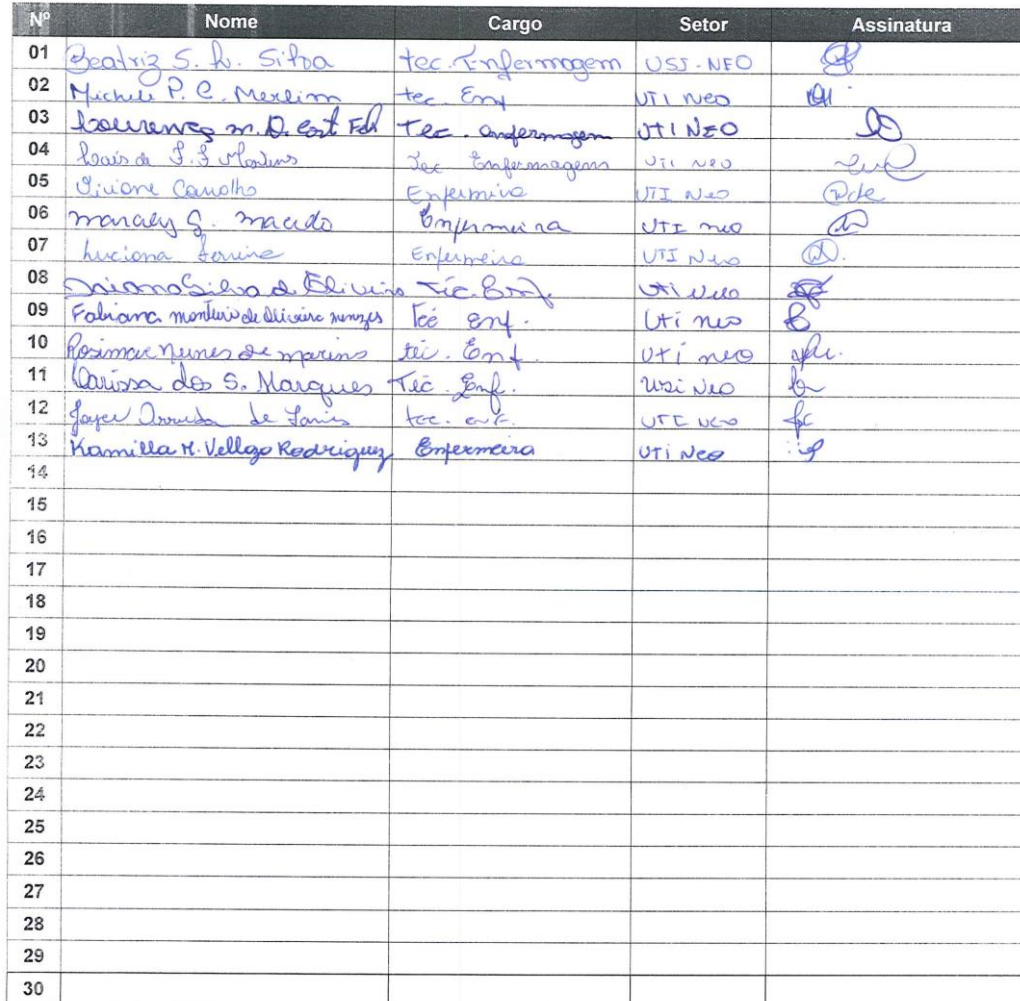 Nº Nome Cargo Setor Assinatura
01 Beatriz S. L. Silva tec. Enfermagem USI-NEO
02 Michele P. C. Merlim tec. Enf UTI Neo
03 Lourenço m. D. Tec. enfermagem UTI NEO
04 Tec Enfermagem UTI Neo
05 Viviane Carvalho Enfermeira UTI Neo
06 G. macedo Enfermeira UTI neo
07 Luciana Enfermeira UTI Neo
08 Silva d Oliveira Téc. Enf. UTI Neo
09 Fabiana monteiro de Oliveira menezes Tec enf. Uti neo
10 Rosimar Nunes de marins téc. Enf. Uti neo
11 Larissa dos S. Marques Téc. Enf. Usi Neo
12 Joyce Arruda de tec. enf. UTI Neo
13 Kamilla M. Rodriguez Enfermeira UTI Neo
14
15
16
17
18
19
20
21
22
23
24
25
26
27
28
29
30